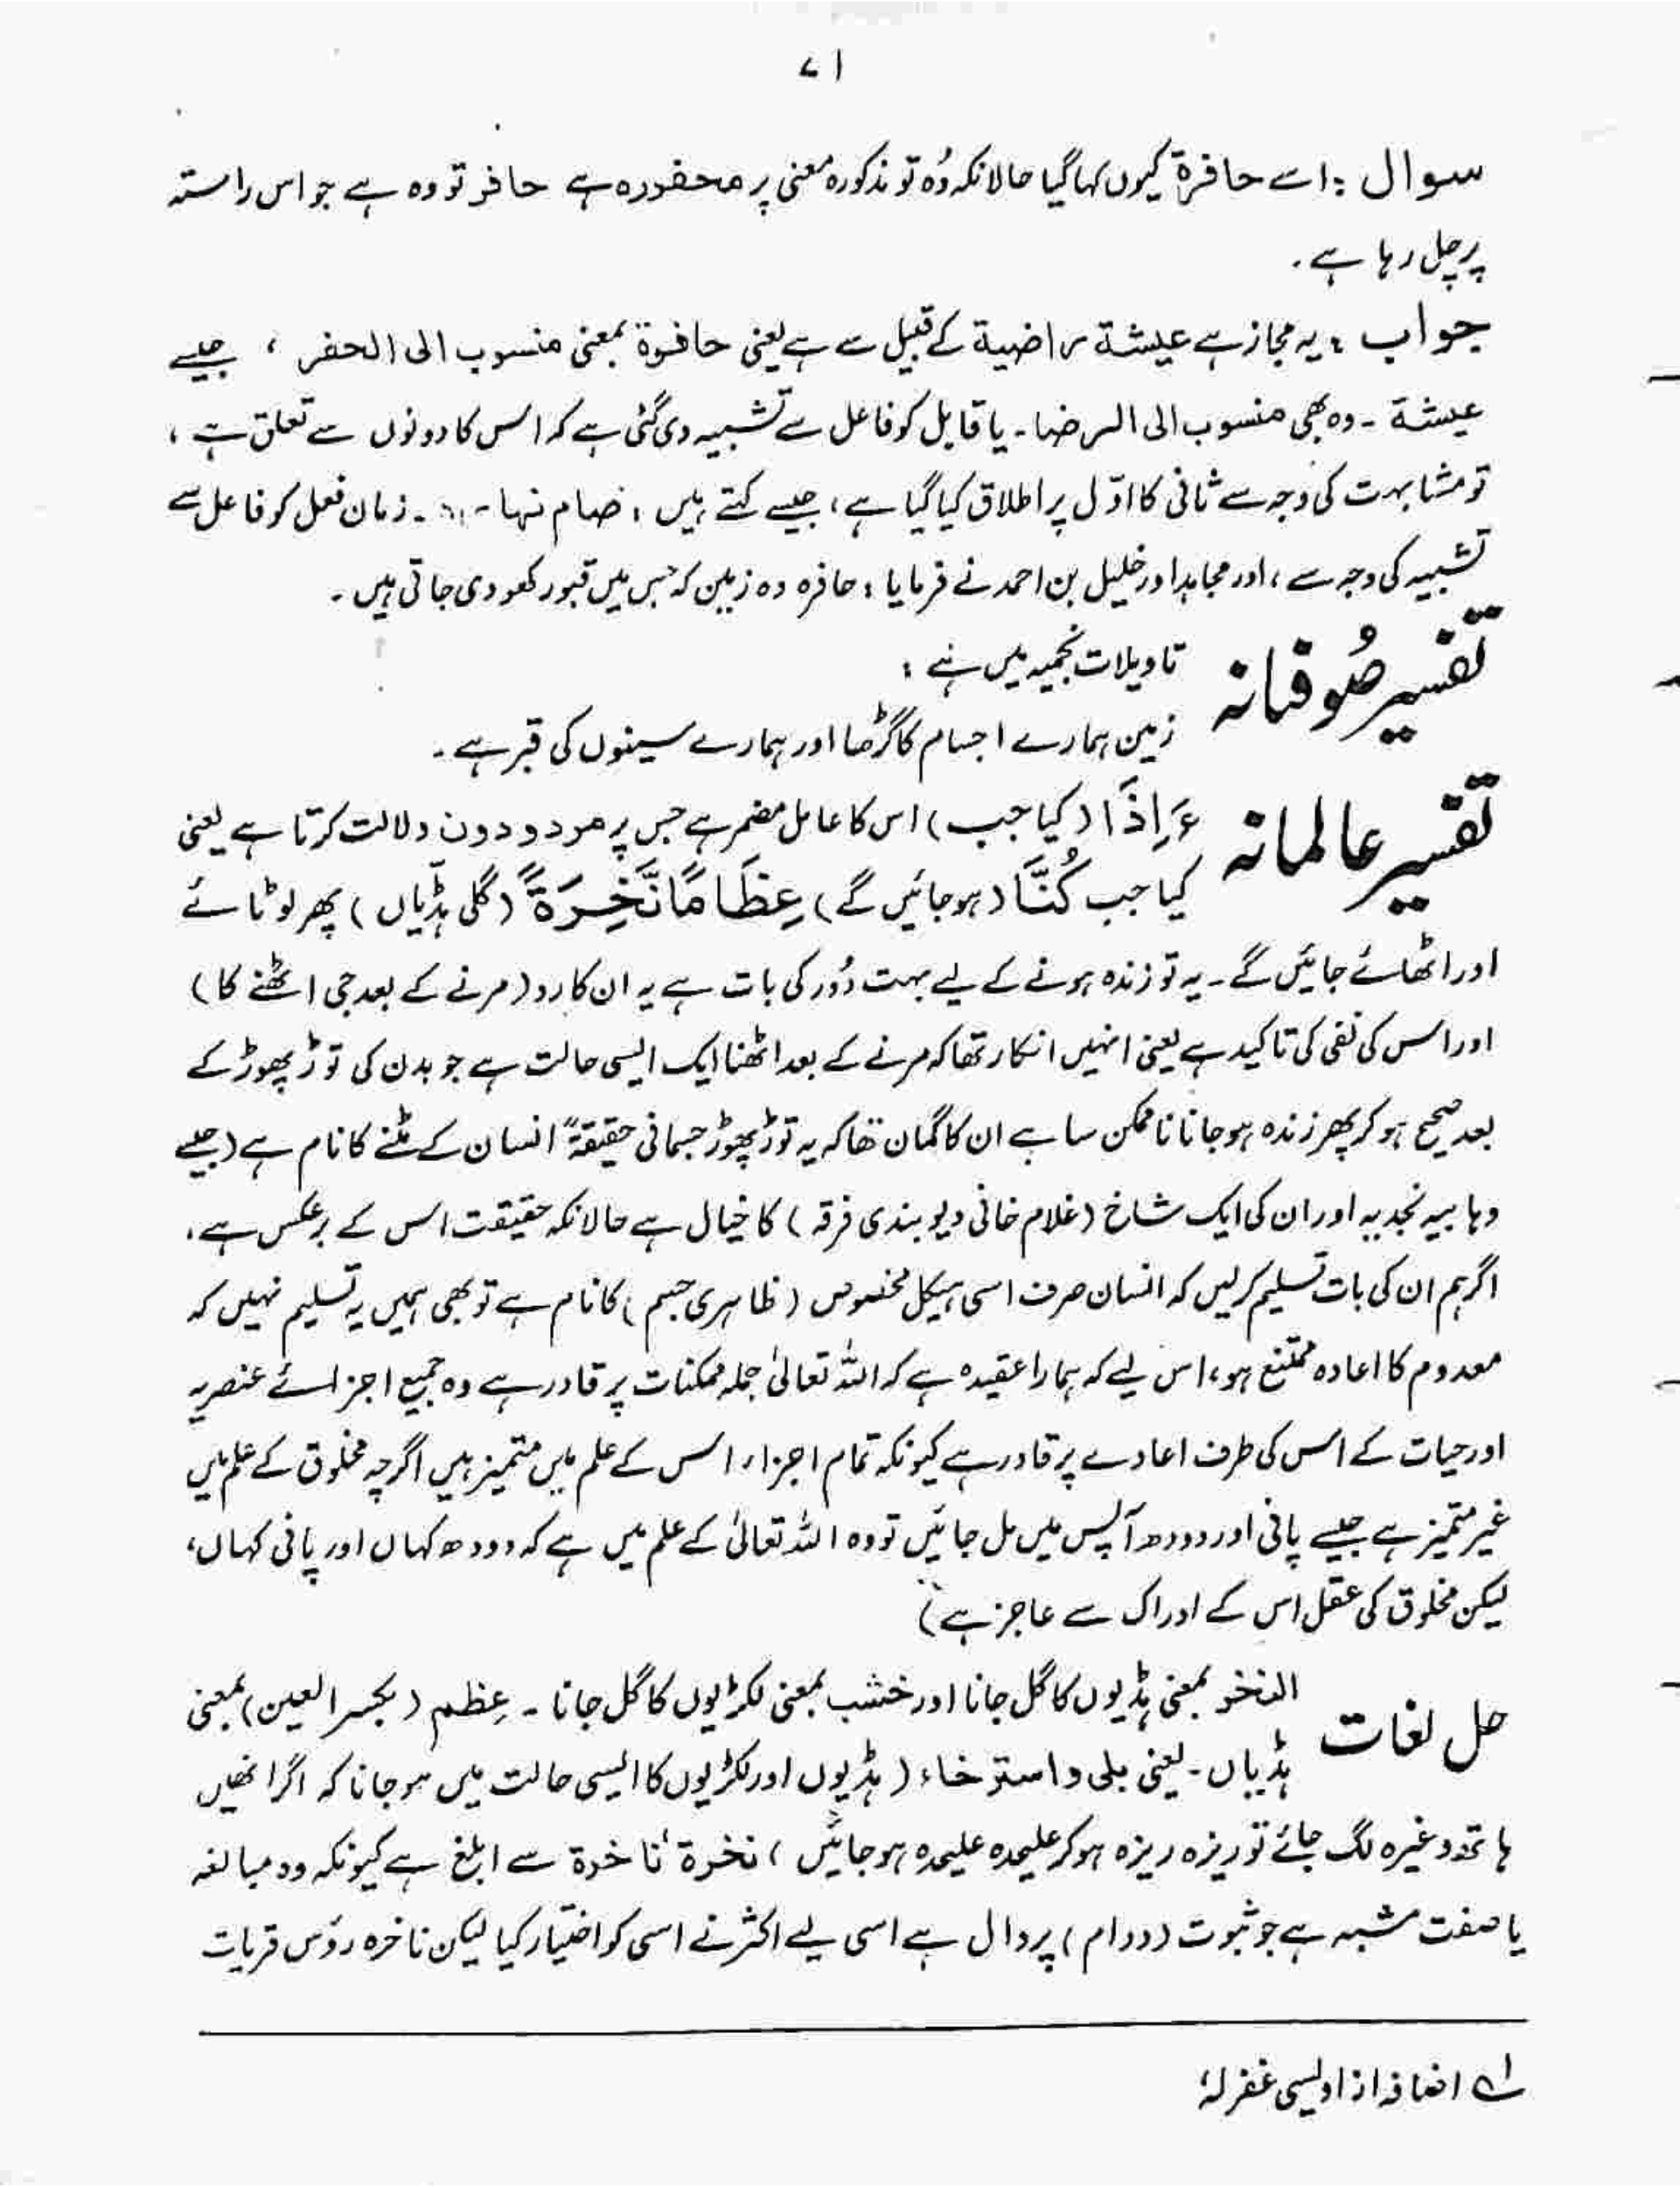 ۷۱
سوال : اسے حافرۃ کیوں کہا گیا حالانکہ وُہ تو مذکورہ معنی پر محفورہ ہے حافر تو وہ ہے جو اس راستہ
پر چل رہا ہے .
جواب : یہ مجاز ہے عیشة راضیة کے قبیل سے ہے یعنی حافرۃ بمعنی منسوب الی الحفر ، جیسے
عیشة ۔ وہ بھی منسوب الی الرضا ۔ یا قابل کو فاعل سے تشبیہ دی گئی ہے کہ اس کا دونوں سے تعلق ہے ،
تو مشابہت کی وجہ سے ثانی کا اوّل پر اطلاق کیا گیا ہے ، جیسے کہتے ہیں : صام نہا ۔ زمان فعل کو فاعل سے
تشبیہ کی وجہ سے ، اور مجاہد اور خلیل بن احمد نے فرمایا : حافرہ وہ زمین کہ جس میں قبور کھودی جاتی ہیں ۔
تفسیر صُوفیانہ تاویلات نجمیہ میں ہے :
زمین ہمارے اجسام کا گڑھا اور ہمارے سینوں کی قبر ہے ۔
تفسیر عالمانہ ءَاِذَا (کیا جب) اس کا عامل مضمر ہے جس پر مردودون دلالت کرتا ہے یعنی
کیا جب کُنَّا (ہو جائیں گے) عِظَامًا نَّخِرَةً (گلی ہڈیاں) پھر لوٹائے
اور اٹھائے جائیں گے ۔ یہ تو زندہ ہونے کے لیے بہت دُور کی بات ہے یہ ان کا رد (مرنے کے بعد جی اٹھنے کا)
اور اس کی نفی کی تاکید ہے یعنی انہیں انکار تھا کہ مرنے کے بعد اٹھنا ایک ایسی حالت ہے جو بدن کی توڑ پھوڑ کے
بعد صحیح ہو کر پھر زندہ ہو جانا ناممکن سا ہے ان کا گمان تھا کہ یہ توڑ پھوڑ جسمانی حقیقۃً انسان کے مٹنے کا نام ہے (جیسے
وہابیہ نجدیہ اور ان کی ایک شاخ (غلام خانی دیوبندی فرقہ) کا خیال ہے حالانکہ حقیقت اس کے برعکس ہے ،
اگر ہم ان کی بات تسلیم کر لیں کہ انسان صرف اسی ہیکل مخصوص (ظاہری جسم) کا نام ہے تو بھی ہمیں یہ تسلیم نہیں کہ
معدوم کا اعادہ ممتنع ہو ، اس لیے کہ ہمارا عقیدہ ہے کہ اللہ تعالیٰ جملہ ممکنات پر قادر ہے وہ جمیع اجزائے عنصریہ
اور حیات کے اس کی طرف اعادے پر قادر ہے کیونکہ تمام اجزاء اس کے علم میں متمیز ہیں اگرچہ مخلوق کے علم میں
غیر متمیز ہے جیسے پانی اور دودھ آپس میں مل جائیں تو وہ اللہ تعالیٰ کے علم میں ہے کہ دودھ کہاں اور پانی کہاں ،
لیکن مخلوق کی عقل اس کے ادراک سے عاجز ہے)
حل لغات النخر بمعنی ہڈیوں کا گل جانا اور خشب بمعنی لکڑیوں کا گل جانا ۔ عِظم (بکسر العین) بمعنی
ہڈیاں ۔ یعنی بلی و استرخاء (ہڈیوں اور لکڑیوں کا ایسی حالت میں ہو جانا کہ اگر انھیں
ہاتھ وغیرہ لگ جائے تو ریزہ ریزہ ہو کر علیحدہ علیحدہ ہو جائیں) نخرۃ ناخرۃ سے ابلغ ہے کیونکہ وہ مبالغہ
یا صفت مشبہ ہے جو ثبوت (دوام) پر دال ہے اسی لیے اکثر نے اسی کو اختیار کیا لیکن ناخرہ رؤس قریات
لے اضافہ از اویسی غفرلہٗ